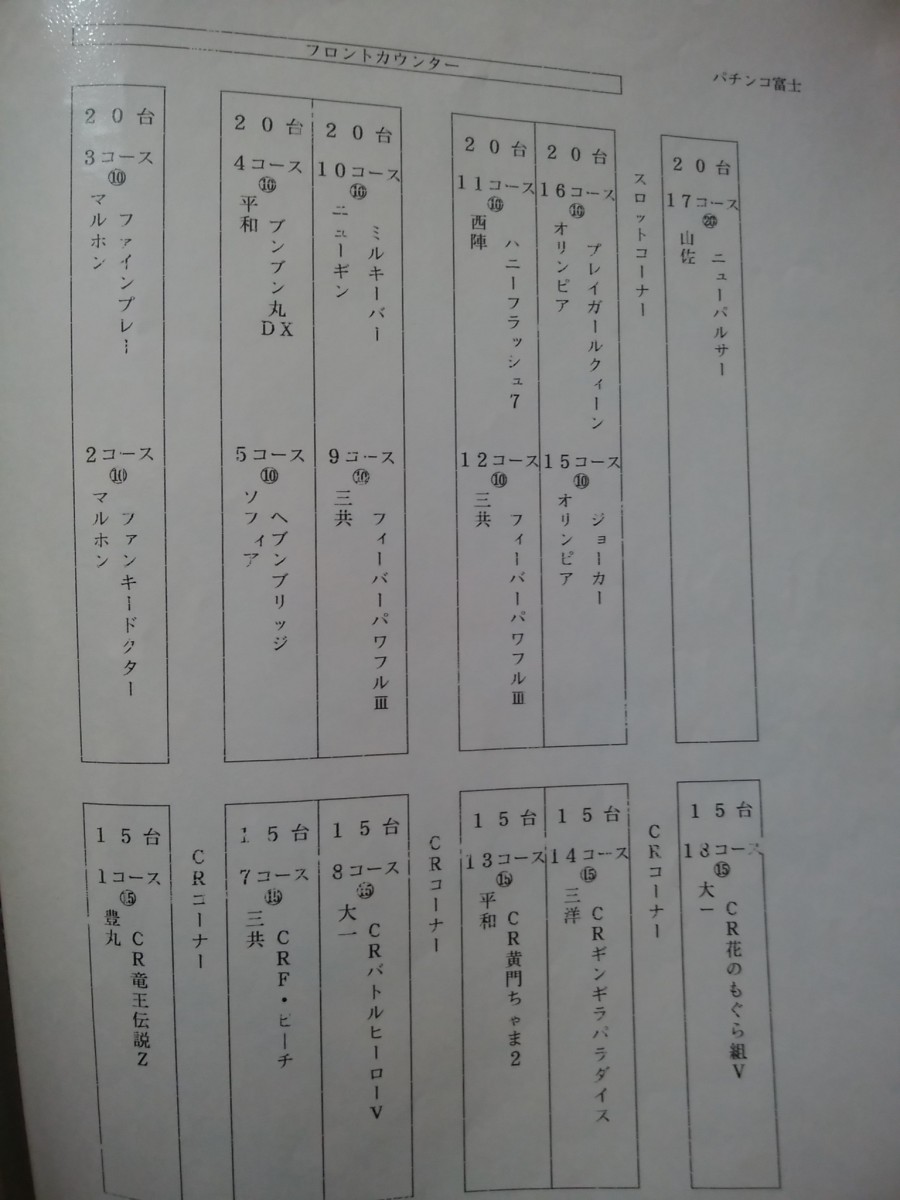 フロントカウンター
パチンコ富士
20台
3コース
⑩
マルホン
ファインプレー
2コース
⑩
マルホン
ファンキードクター
20台
4コース
⑩
平和
ブンブン丸
DX
5コース
⑩
ソフィア
ヘブンブリッジ
20台
10コース
⑩
ニューギン
ミルキーバー
9コース
⑩
三共
フィーバーパワフルⅢ
20台
11コース
⑩
西陣
ハニーフラッシュ7
12コース
⑩
三共
フィーバーパワフルⅢ
20台
16コース
⑩
オリンピア
プレイガールクィーン
15コース
⑩
オリンピア
ジョーカー
スロットコーナー
20台
17コース
⑳
山佐
ニューパルサー
15台
1コース
⑮
豊丸
CR竜王伝説Z
CRコーナー
15台
7コース
⑮
三共
CRF・ピーチ
15台
8コース
⑮
大一
CRバトルヒーローV
CRコーナー
15台
13コース
⑮
平和
CR黄門ちゃま2
15台
14コース
⑮
三洋
CRギンギラパラダイス
CRコーナー
15台
18コース
⑮
大一
CR花のもぐら組V